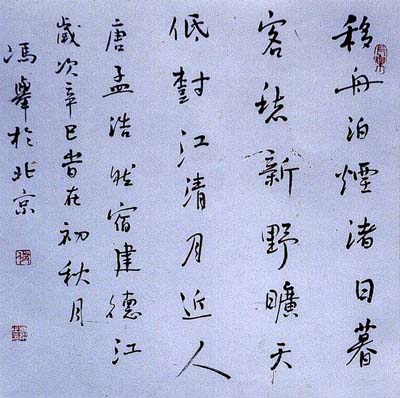 移舟泊煙渚日暮
客愁新野曠天
低樹江清月近人
唐孟浩然宿建德江
歲次辛巳旹在初秋月
馮舉於北京